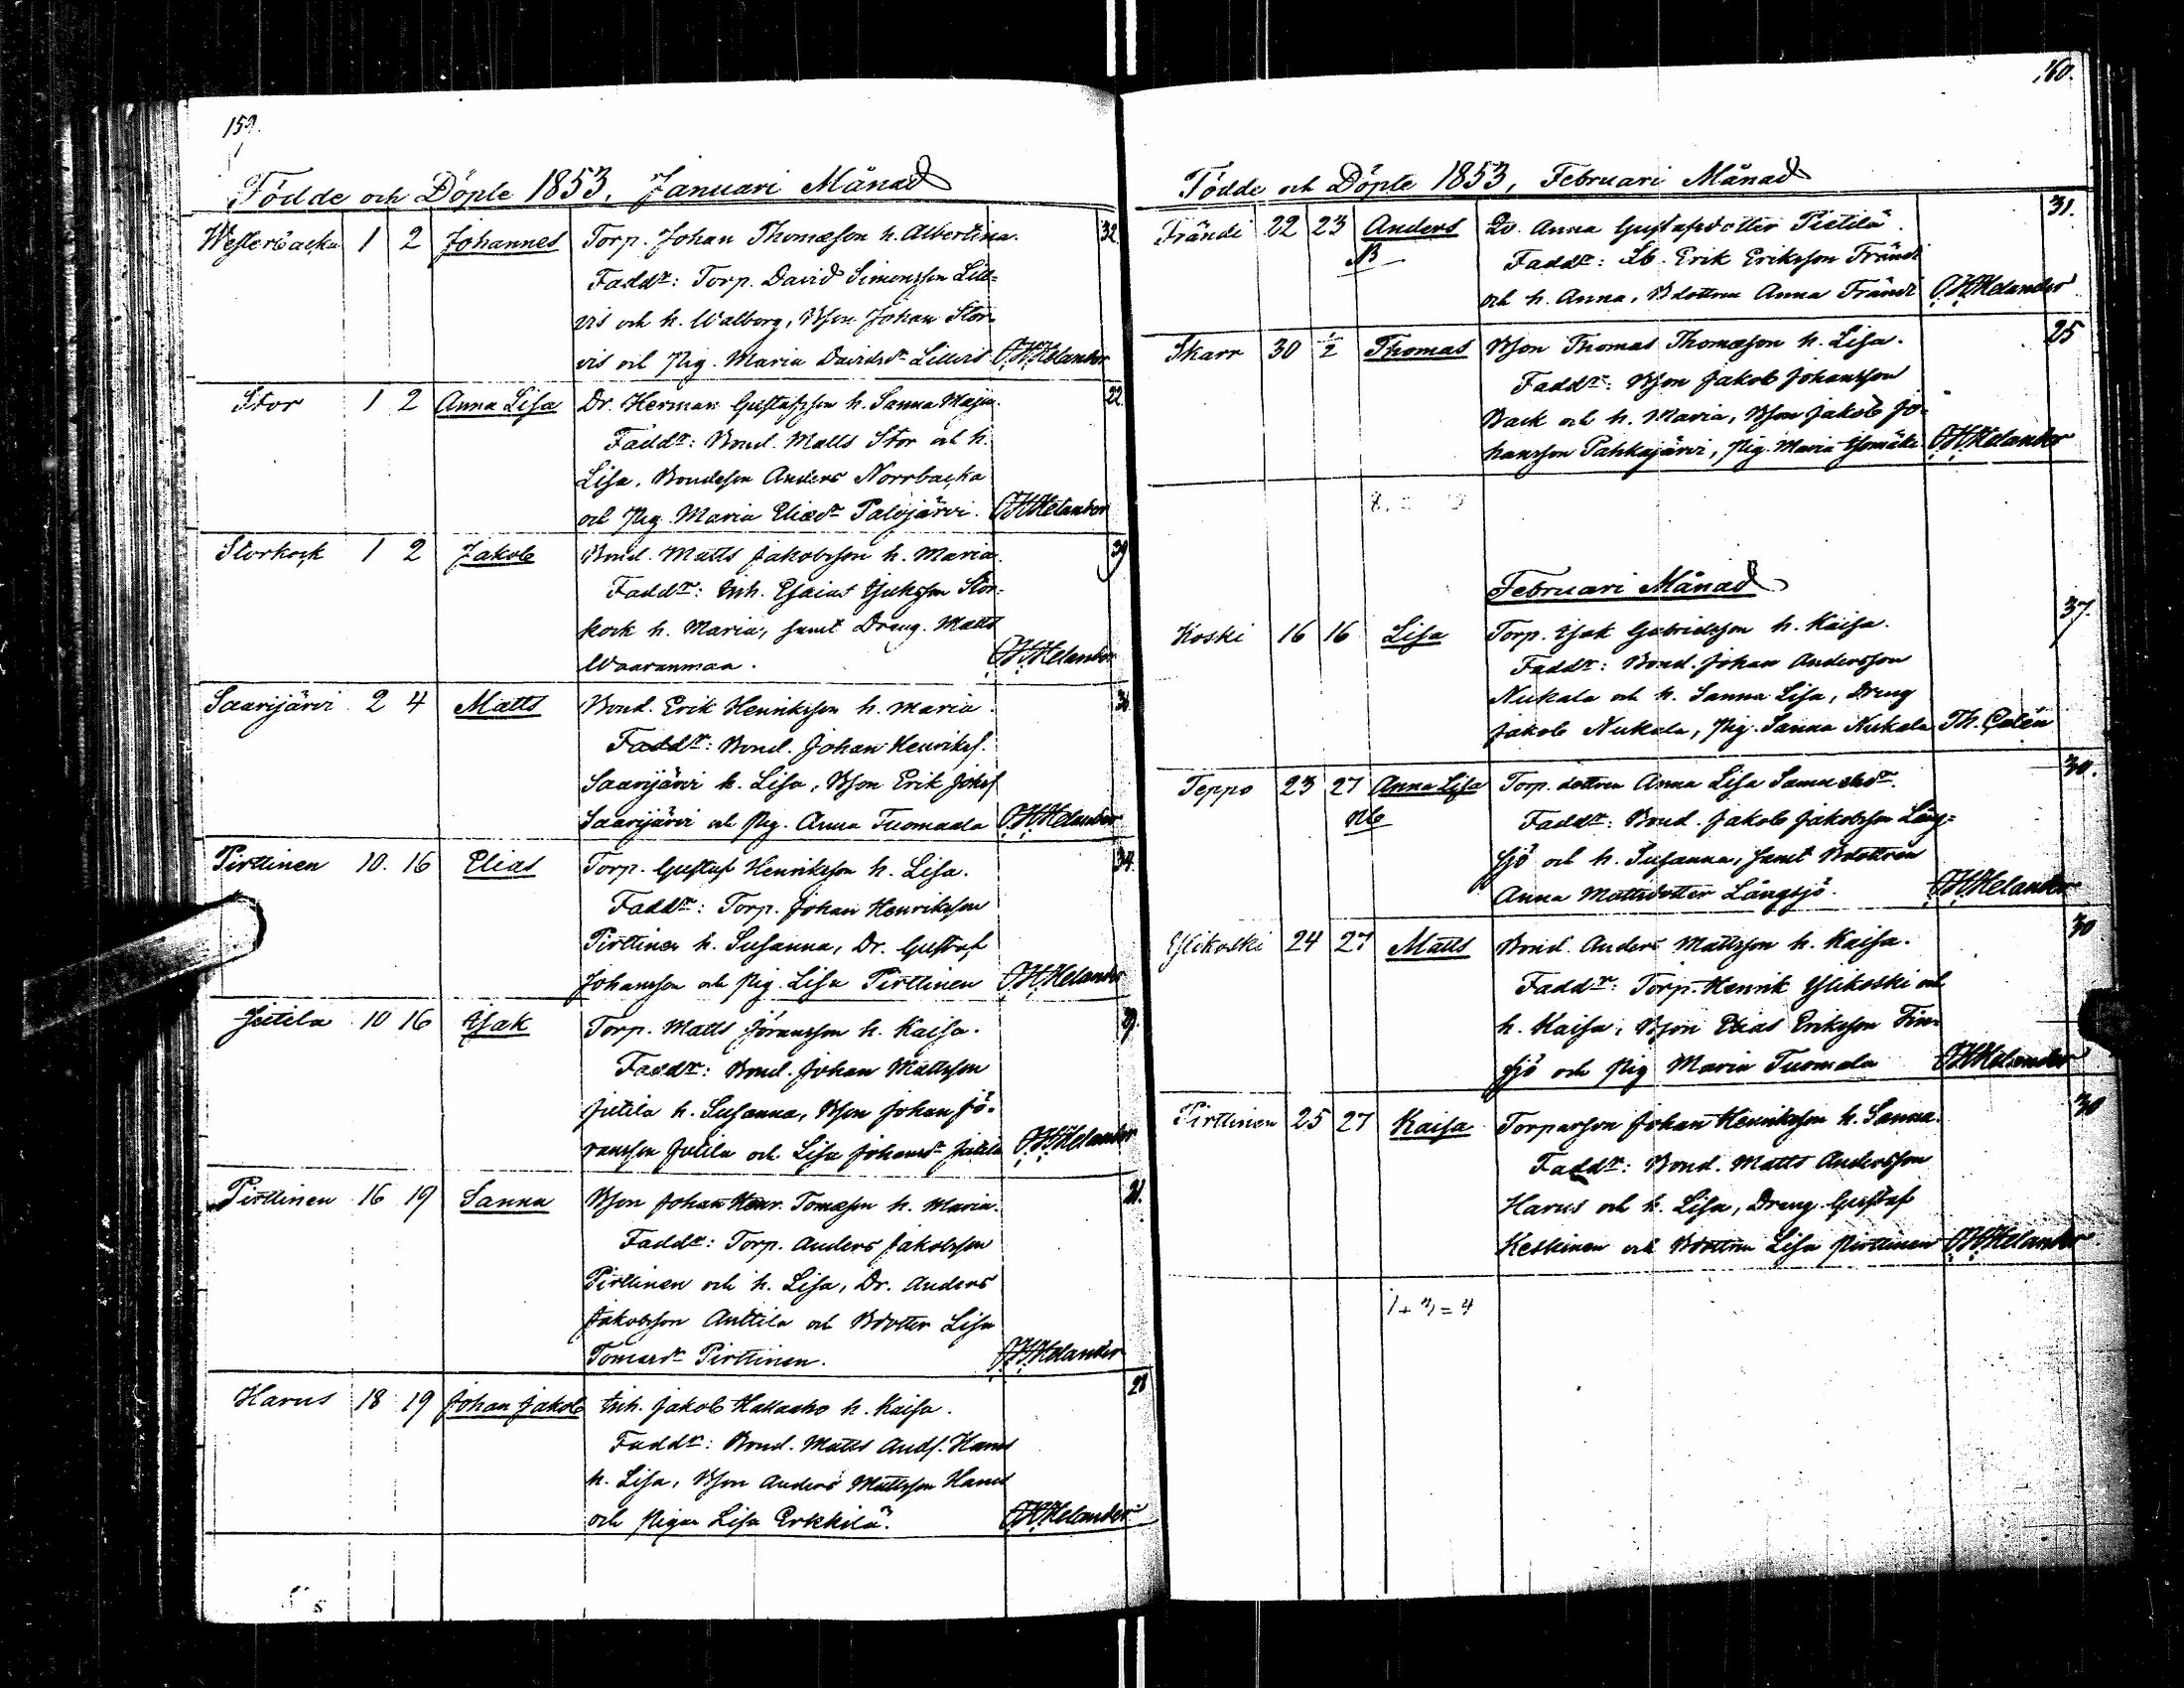 159.
Födde och Döpte 1853, Januari Månad
Westerbacka 1 2 Johannes Torp. Johan Thomæson h. Albertina. 32
Faddr: Torp. David Simonsson Lill=
vis och h. Walborg, Bson Johan Stor-
vis och Pig. Maria Davidsdr Lillvis O.H.Helander
Stor 1 2 Anna Lisa Dr. Herman Gustafsson h. Sanna Maja. 22.
Faddr: Bond. Matts Stor och h.
Lisa, Bondeson Anders Norrbacka
och Pig. Maria Eliædr Palojärvi. O.H.Helander
Storkock 1 2 Jakob Bond. Matts Jakobsson h. Maria. 39
Faddr: Inh. Esaias Isaksson Stor=
kock h. Maria, samt Dräng. Matts
Waaranmaa. O.H.Helander
Saarijärvi 2 4 Matts Bond. Erik Henriksson h. Maria.
Faddr: Bond. Johan Henrikss.
Saarijärvi h. Lisa, Bson Erik Johss
Saarijärvi och Pig. Anna Tuomaala O.H.Helander
Pirttinen 10. 16 Elias Torp. Gustaf Henriksson h. Lisa. 34.
Faddr: Torp. Johan Henriksson
Pirttinen h. Susanna, Dr. Gustaf
Johansson och Pig. Lisa Pirttinen O.H.Helander
Jutila 10 16 Isak Torp. Matts Jöransson h. Kaisa. 29.
Faddr: Bond. Johan Mattsson
Jutila h. Susanna, Bson Johan Jö-
ransson Jutila och Lisa Johansdr Jutila O.H.Helander
Pirttinen 16 19 Sanna Bson Johan Henr. Tomæson h. Maria. 21.
Faddr: Torp. Anders Jakobsson
Pirttinen och h. Lisa, Dr. Anders
Jakobsson Anttila och Bdotter Lisa
Tomæsdr Pirttinen. O.H.Helander
Harus 18 19 Johan Jakob Inh. Jakob Kattaaho h. Kaisa. 28
Faddr: Bond. Matts Ands. Harus
h. Lisa, Bson Anders Mattsson Harus
och Pigan Lisa Erkkilä. O.H.Helander
160.
Födde och Döpte 1853, Februari Månad
Frändi 22 23 Anders Lö. Anna Gustafsdotter Pietilä. 31.
NB Faddr: Lb. Erik Eriksson Frändi
och h. Anna, Bdottren Anna Frändi O.H.Helander
Skarr 30 1/2 Thomas Bson Thomas Thomæson h. Lisa. 25
Faddr: Bson Jakob Johansson
Back och h. Maria, Bson Jakob Jo-
hansson Pahkajärvi, Pig. Maria Isomäki O.H.Helander
Februari Månad
Koski 16 16 Lisa Torp. Isak Gabrielsson h. Kaisa. 37.
Faddr: Bond. Johan Andersson
Nukala och h. Sanna Lisa, Dreng
Jakob Nukala, Pig. Sanna Nukala Th. Galén
Teppo 23 27 Anna Lisa Torp. dottren Anna Lisa Samuelsdr. 30.
NB Faddr: Bond. Jakob Jakobsson Lång=
sjö och h. Susanna, samt Bdottren
Anna Mattsdotter Långsjö. O.H.Helander
Ylikoski 24 27 Matts Bond. Anders Mattsson h. Kaisa. 30
Faddr: Torp. Henrik Ylikoski och
h. Kaisa, Bson Elias Eriksson Fin-
sjö och Pig Maria Tuomala O.H.Helander
Pirttinen 25 27 Kaisa Torparson Johan Henriksson h. Sanna. 30
Faddr: Bond. Matts Andersson
Harus och h. Lisa, Dreng. Gustaf
Keskinen och Bdottren Lisa Pirttinen O.H.Helander
1+3=4